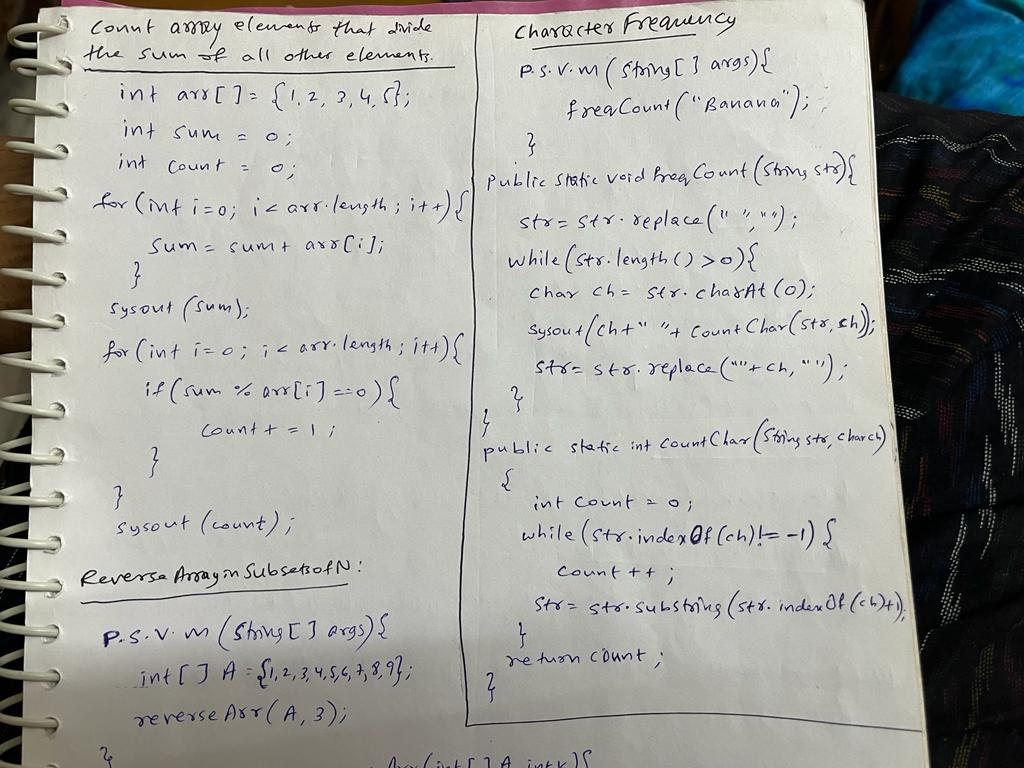 Count array elements that divide
the sum of all other elements.
int arr[] = {1, 2, 3, 4, 5};
int sum = 0;
int count = 0;
for(int i=0; i< arr.length; i++){
sum = sum + arr[i];
}
sysout (sum);
for(int i=0; i< arr.length; i++){
if(sum % arr[i]==0){
count + = 1;
}
}
sysout (count);
Reverse Array in Subsets of N:
P.S.V.m (String[] args){
int[] A = {1, 2, 3, 4, 5, 6, 7, 8, 9};
reverseArr(A, 3);
}
Arr(int[] A, int k){
Character Frequency
P.S.V.m (String[] args){
freqCount("Banana");
}
public static void freqCount(String str){
str = str.replace(" ", "");
while(str.length() >0){
char ch = str.charAt(0);
sysout(ch+" "+ countChar(str, ch));
str = str.replace(""+ ch, "");
}
}
public static int countChar(String str, char ch)
{
int count = 0;
while(str.indexOf(ch)!= -1){
count ++;
str = str.substring(str.indexOf(ch)+1);
}
return count;
}